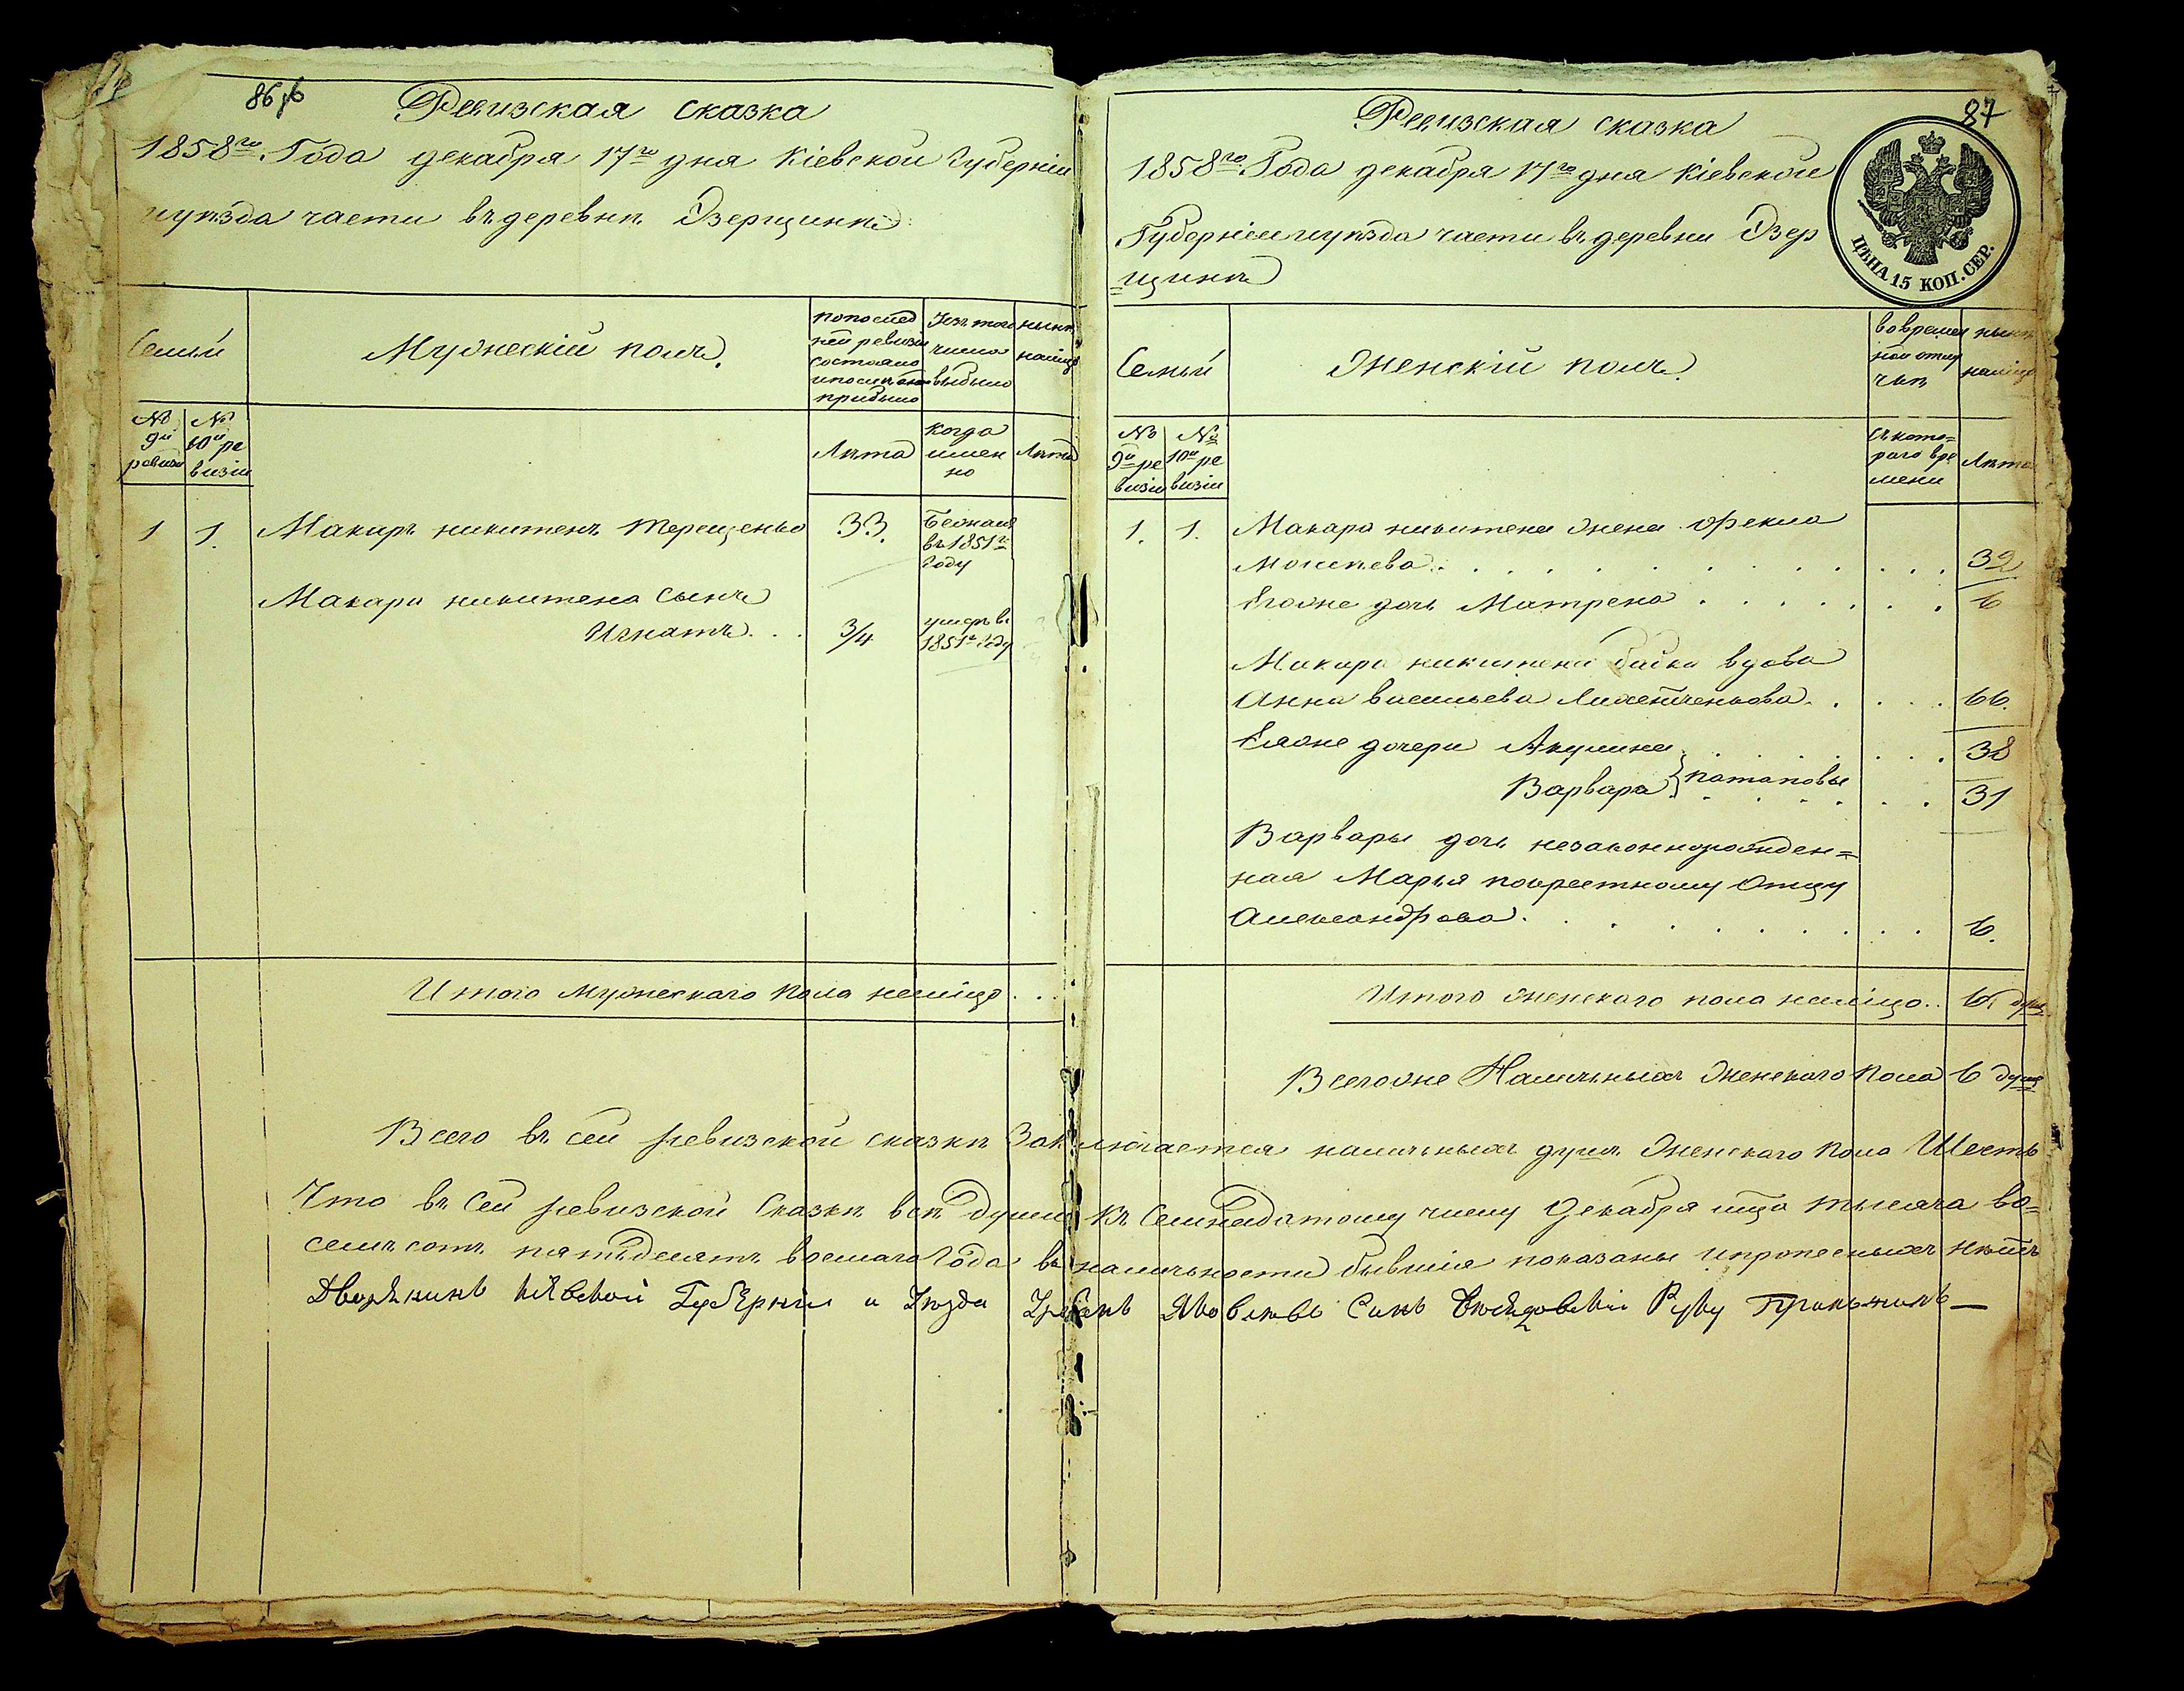 86 об
Ревизская сказка
1858го Года декабря 17го дня Кіевской Губерніи
иуѣзда части въ деревнѣ Озерщинѣ
Семьи
Мужескій полъ.
попослед
ней ревизіи
состояло
ипослѣ оной
прибыло
Изъ того
числа
выбыло
нынѣ
налицо
№
9й
ревизіи
№
10й ре
визіи
Лѣта
когда
имен
но
Лѣта
1
1.
Макаръ никитенъ Терещенько
33.
Бежалъ
въ 1851м
Году
Макара никитена Сынъ
Игнатъ. . .
3/4
умеръ въ
1851м Году
Итого мужескаго пола налицо . . .
87
Ревизская сказка
1858го Года декабря 17го дня Кіевской
Губерніи иуѣзда части въ деревни Озер
щинѣ
ЦѢНА 15 КОП. СЕР.
Семьи
Женскій полъ.
вовремен
ной отлу
чкѣ
нынѣ
налицо
№
9й ре
визіи
№
10й ре
визіи
съ кото=
раго вре
мени
Лѣта
1.
1.
Макара никитена жена Фекла
Мосиева . . . . . . . . . . . 32
Егоже дочь Матрена . . . . . . . 6
Макара никитена бабка вдова
Анна васильева . . . . 66.
Еяже дочери Акулина . . . . . . . 38
Варвара } потаповы . . . . . . 31
Варвары дочь незаконнорожден=
ная Марья покрестному Отцу
Александрова . . . . . . . . . 6.
Итого женскаго пола налицо . . 6. душ
Всегоже Наличныхъ женскаго пола 6 душ
Всего въ сей ревизской сказкѣ Заключается наличныхъ душъ женскаго пола Шесть
Что въ Сей ревизской Сказкѣ всѣ души Къ Семнадцатому числу декабря мца тысяча во=
семьсотъ пятьдесятъ восмаго Года въ наличности бывшія показаны ипрописныхъ нѣтъ
Дворянинъ Кіевской Губерніи и Уѣзда Сынъ Руку Приложилъ—